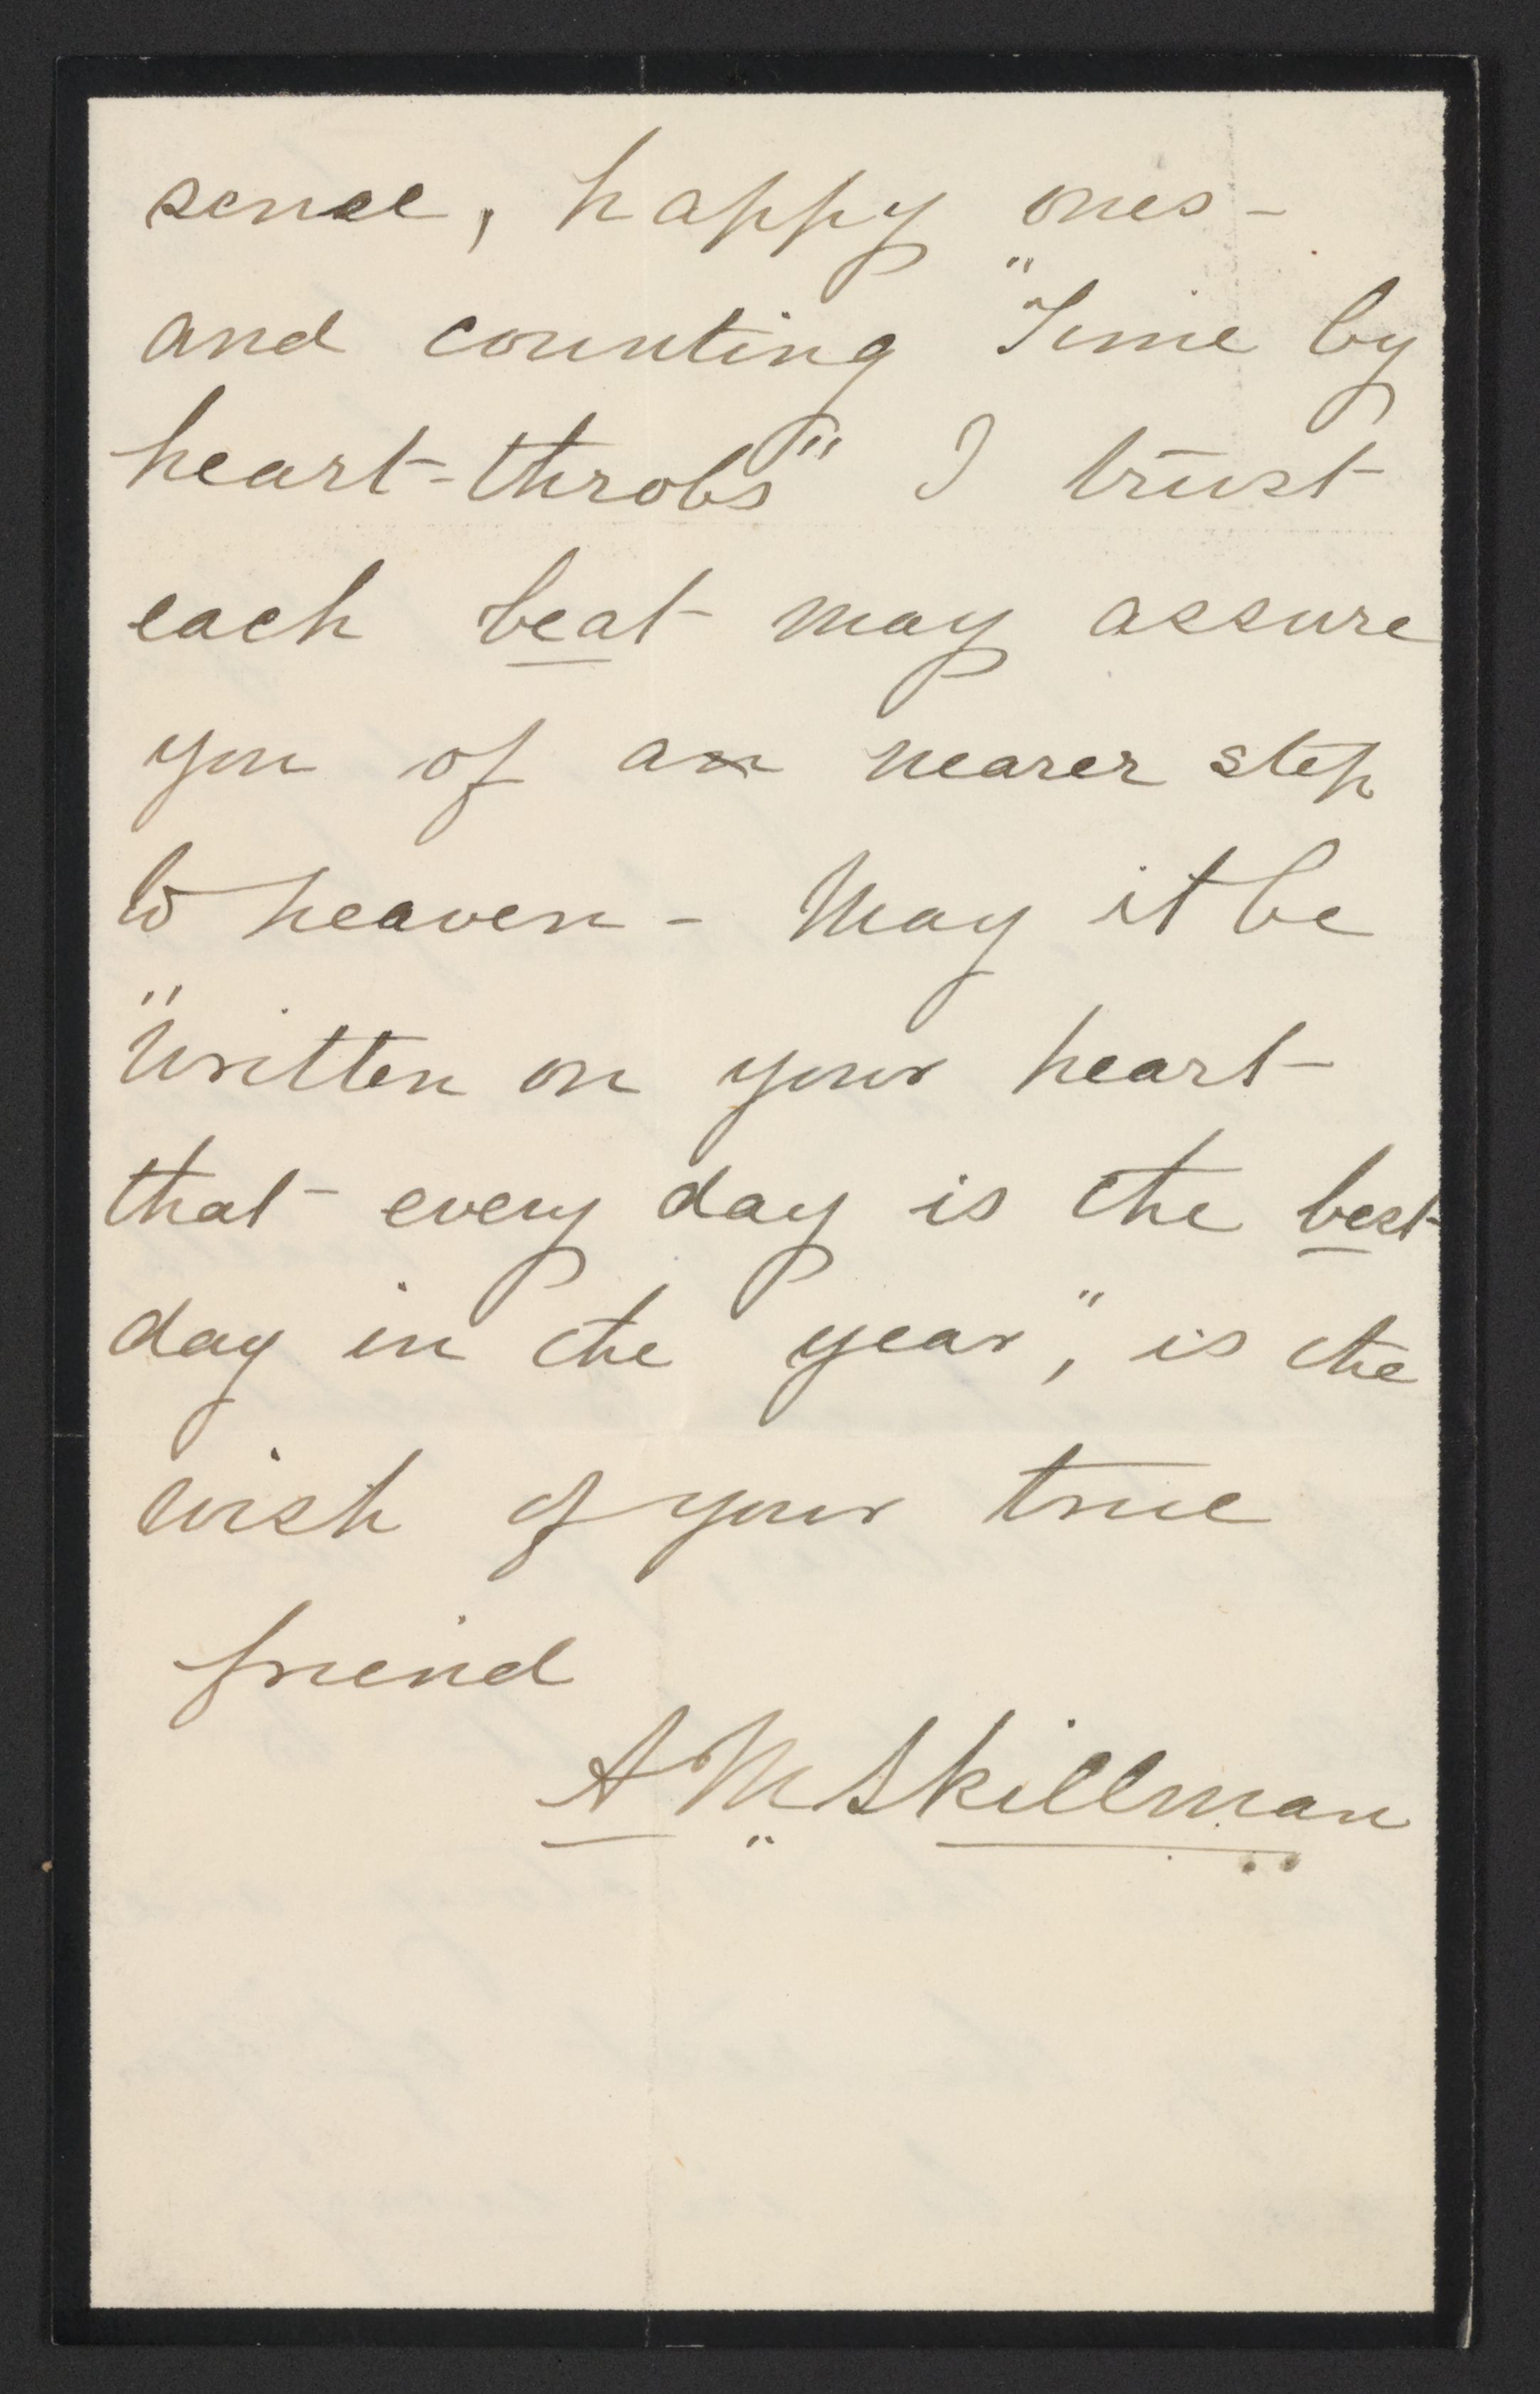 sense, happy ones -
and counting "Time by
heart-throbs" I trust
each beat may assure
you of a nearer step
to heaven - May it be
"written on your heart
that every day is the best
day in the year", is the
wish of your true
friend
A M Skillman